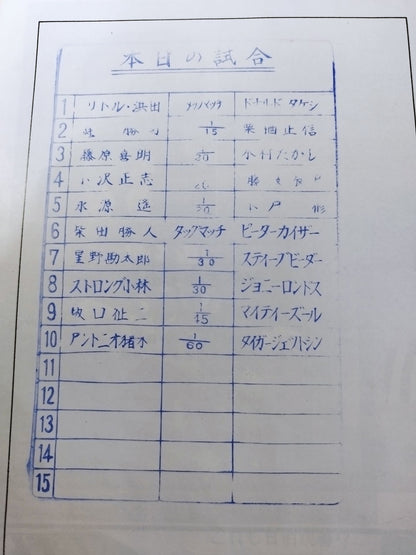 本日の試合
1 リトル・浜田 タッグマッチ ドナルド タケシ
2 勝 1/15 栗栖正信
3 藤原喜明 1/20 木村たかし
4 小沢正志
5 永源遥 1/20
6 柴田勝久 タッグマッチ ピーターカイザー
7 星野勘太郎 1/30 スティーブビーダー
8 ストロング小林 1/30 ジョニーロンドス
9 坂口征二 1/45 マイティーズール
10 アントニオ猪木 1/60 タイガージェットシン
11
12
13
14
15